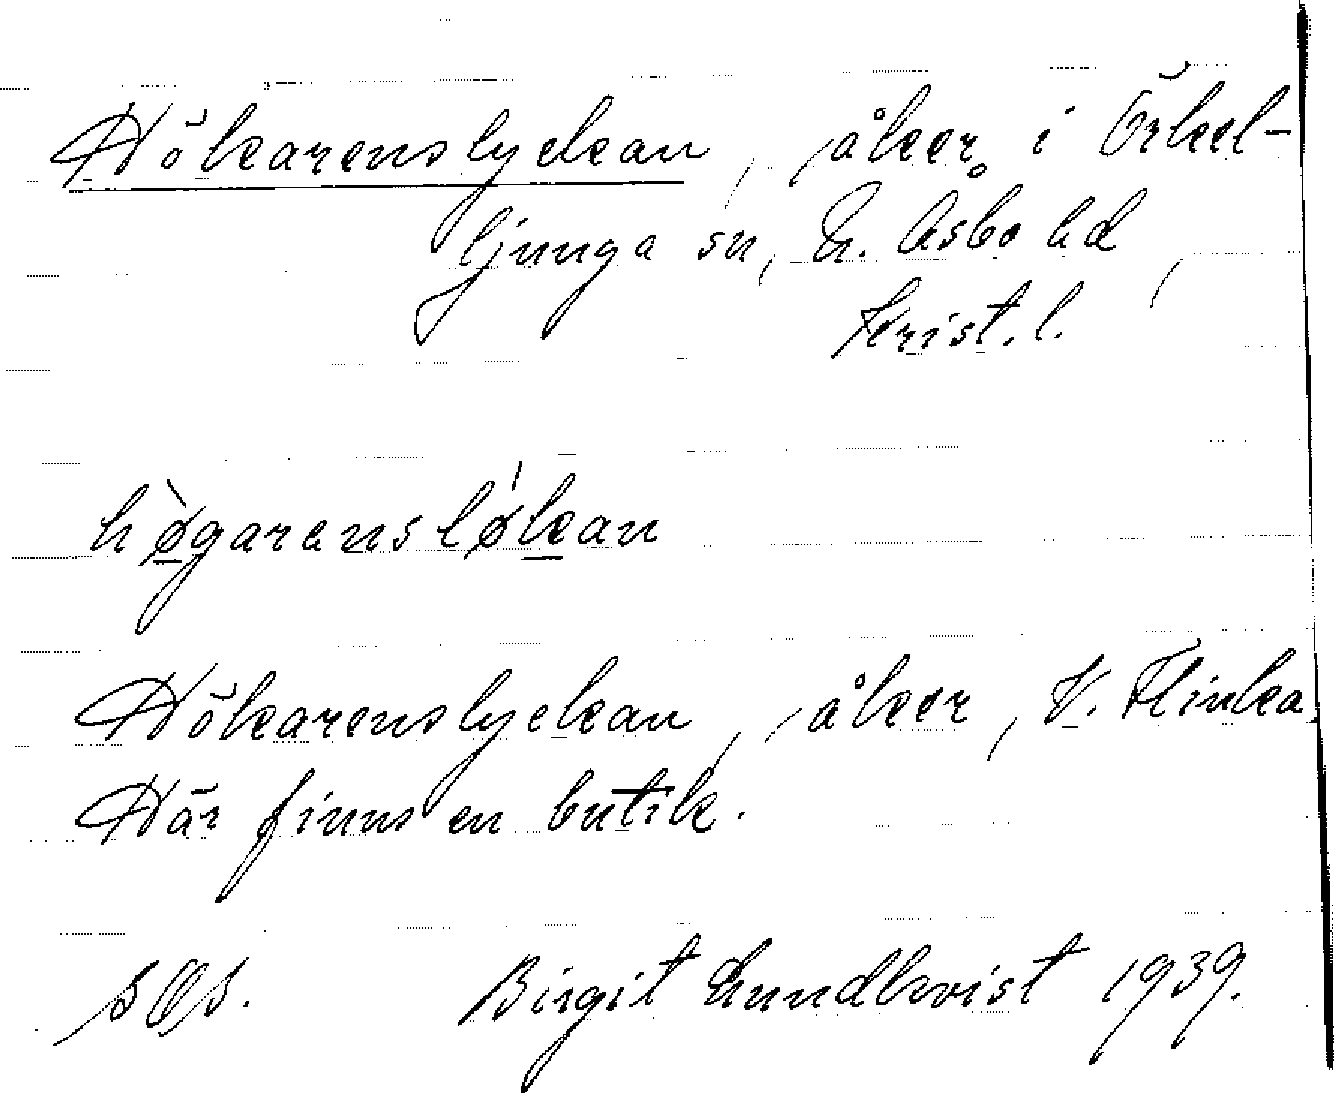 Hökarenslyckan, åker i Örkel-
ljunga sn, N. Åsbo hd,
Krist. l.
hø̀garensløkan
Hökarenslyckan, åker, V. Flinka.
Här finns en butik.
Birgit Lundkvist 1939.